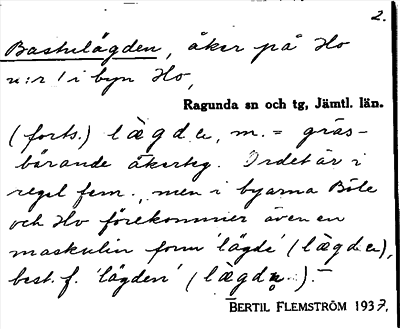 2.
Bastulägden, åker på Ho
n:r 1 i byn Ho,
Ragunda sn och tg, Jämtl. län.
(forts.) lägde, m. = gräs-
bärande åkerteg. Ordet är i
regel fem., men i byarna Böle
och Ho förekommer även en
maskulin form 'lägde' (lägde),
best. f. 'lägden' (lägdn̥). –
BERTIL FLEMSTRÖM 1937.